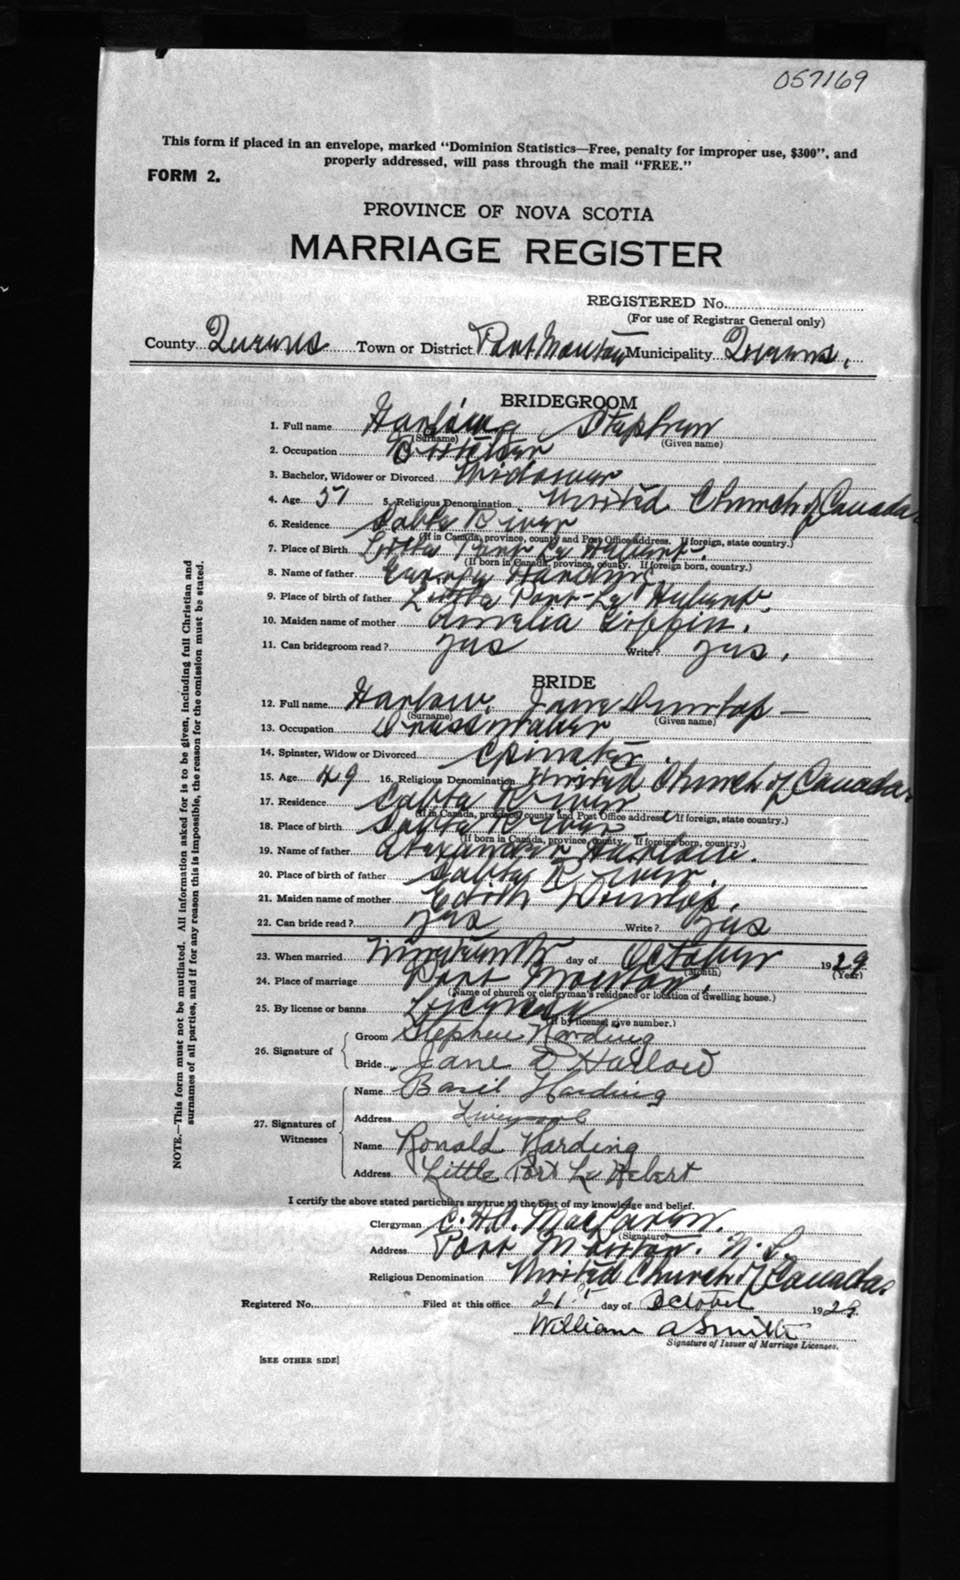 057169
This form if placed in an envelope, marked "Dominion Statistics—Free, penalty for improper use, $300", and
properly addressed, will pass through the mail "FREE."
FORM 2.
PROVINCE OF NOVA SCOTIA
MARRIAGE REGISTER
REGISTERED No.
(For use of Registrar General only)
County Queens Town or District Port Mouton Municipality Queens.
BRIDEGROOM
1. Full name Harding Stephen
(Surname) (Given name)
2. Occupation
3. Bachelor, Widower or Divorced Widower
4. Age 51 5. Religious Denomination United Church of Canada
6. Residence Sable River
(If in Canada, province, county and Post Office address. If foreign, state country.)
7. Place of Birth Little Port Le Hebert.
(If born in Canada, province, county. If foreign born, country.)
8. Name of father George Harding
9. Place of birth of father Little Port-Le Hebert.
10. Maiden name of mother Amelia Giffin.
11. Can bridegroom read? yes Write? yes.
BRIDE
12. Full name Harlow, Jane Dunlap —
(Surname) (Given name)
13. Occupation Dressmaker
14. Spinster, Widow or Divorced Spinster.
15. Age 49 16. Religious Denomination United Church of Canada
17. Residence Sable River
(If in Canada, province, county and Post Office address. If foreign, state country.)
18. Place of birth Sable River
(If born in Canada, province, county. If foreign born, country.)
19. Name of father Alexander Harlow.
20. Place of birth of father Sable River.
21. Maiden name of mother Edith Dunlap.
22. Can bride read? yes Write? yes
23. When married Nineteenth day of October 1929
(Month) (Year)
24. Place of marriage Port Mouton.
(Name of church or clergyman's residence or location of dwelling house.)
25. By license or banns License
(If by license, give number.)
26. Signature of
Groom Stephen Harding
Bride Jane D Harlow
27. Signatures of Witnesses
Name Basil Harding
Address Liverpool
Name Ronald Harding
Address Little Port Le Hebert
I certify the above stated particulars are true to the best of my knowledge and belief.
Clergyman MacLaren.
(Signature)
Address Port Mouton. N.S.
Religious Denomination United Church of Canada
Registered No. Filed at this office 21st day of October 1929.
William A Smith
Signature of Issuer of Marriage Licenses.
[SEE OTHER SIDE]
NOTE.—This form must not be mutilated. All information asked for is to be given, including full Christian and
surnames of all parties, and if for any reason this is impossible, the reason for the omission must be stated.